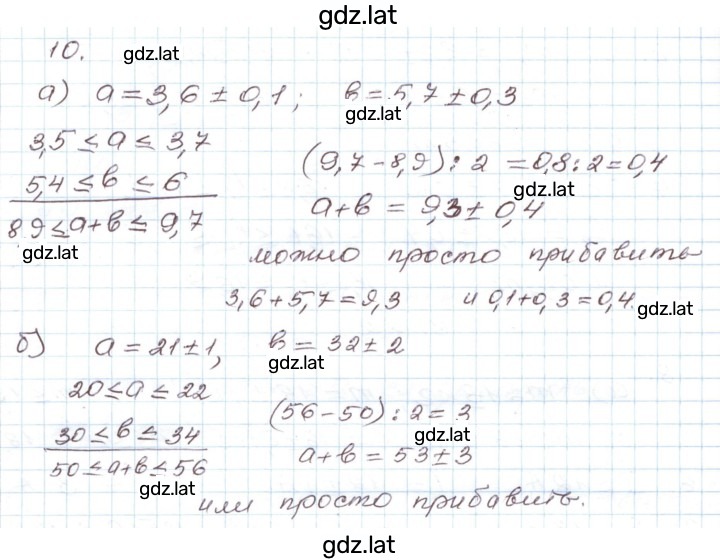 gdz.lat
10. gdz.lat
а) a = 3,6 ± 0,1; b = 5,7 ± 0,3
gdz.lat
3,5 ≤ a ≤ 3,7
5,4 ≤ b ≤ 6
8 9 ≤ a+b ≤ 9,7
gdz.lat
(9,7 - 8,9) : 2 = 0,8 : 2 = 0,4
gdz.lat
a+b = 9,3 ± 0,4
можно просто прибавить
3,6 + 5,7 = 9,3 и 0,1 + 0,3 = 0,4. gdz.lat
б) a = 21 ± 1, b = 32 ± 2
gdz.lat
20 ≤ a ≤ 22
30 ≤ b ≤ 34
50 ≤ a+b ≤ 56
gdz.lat
(56 - 50) : 2 = 3
gdz.lat
a+b = 53 ± 3
или просто прибавить.
gdz.lat